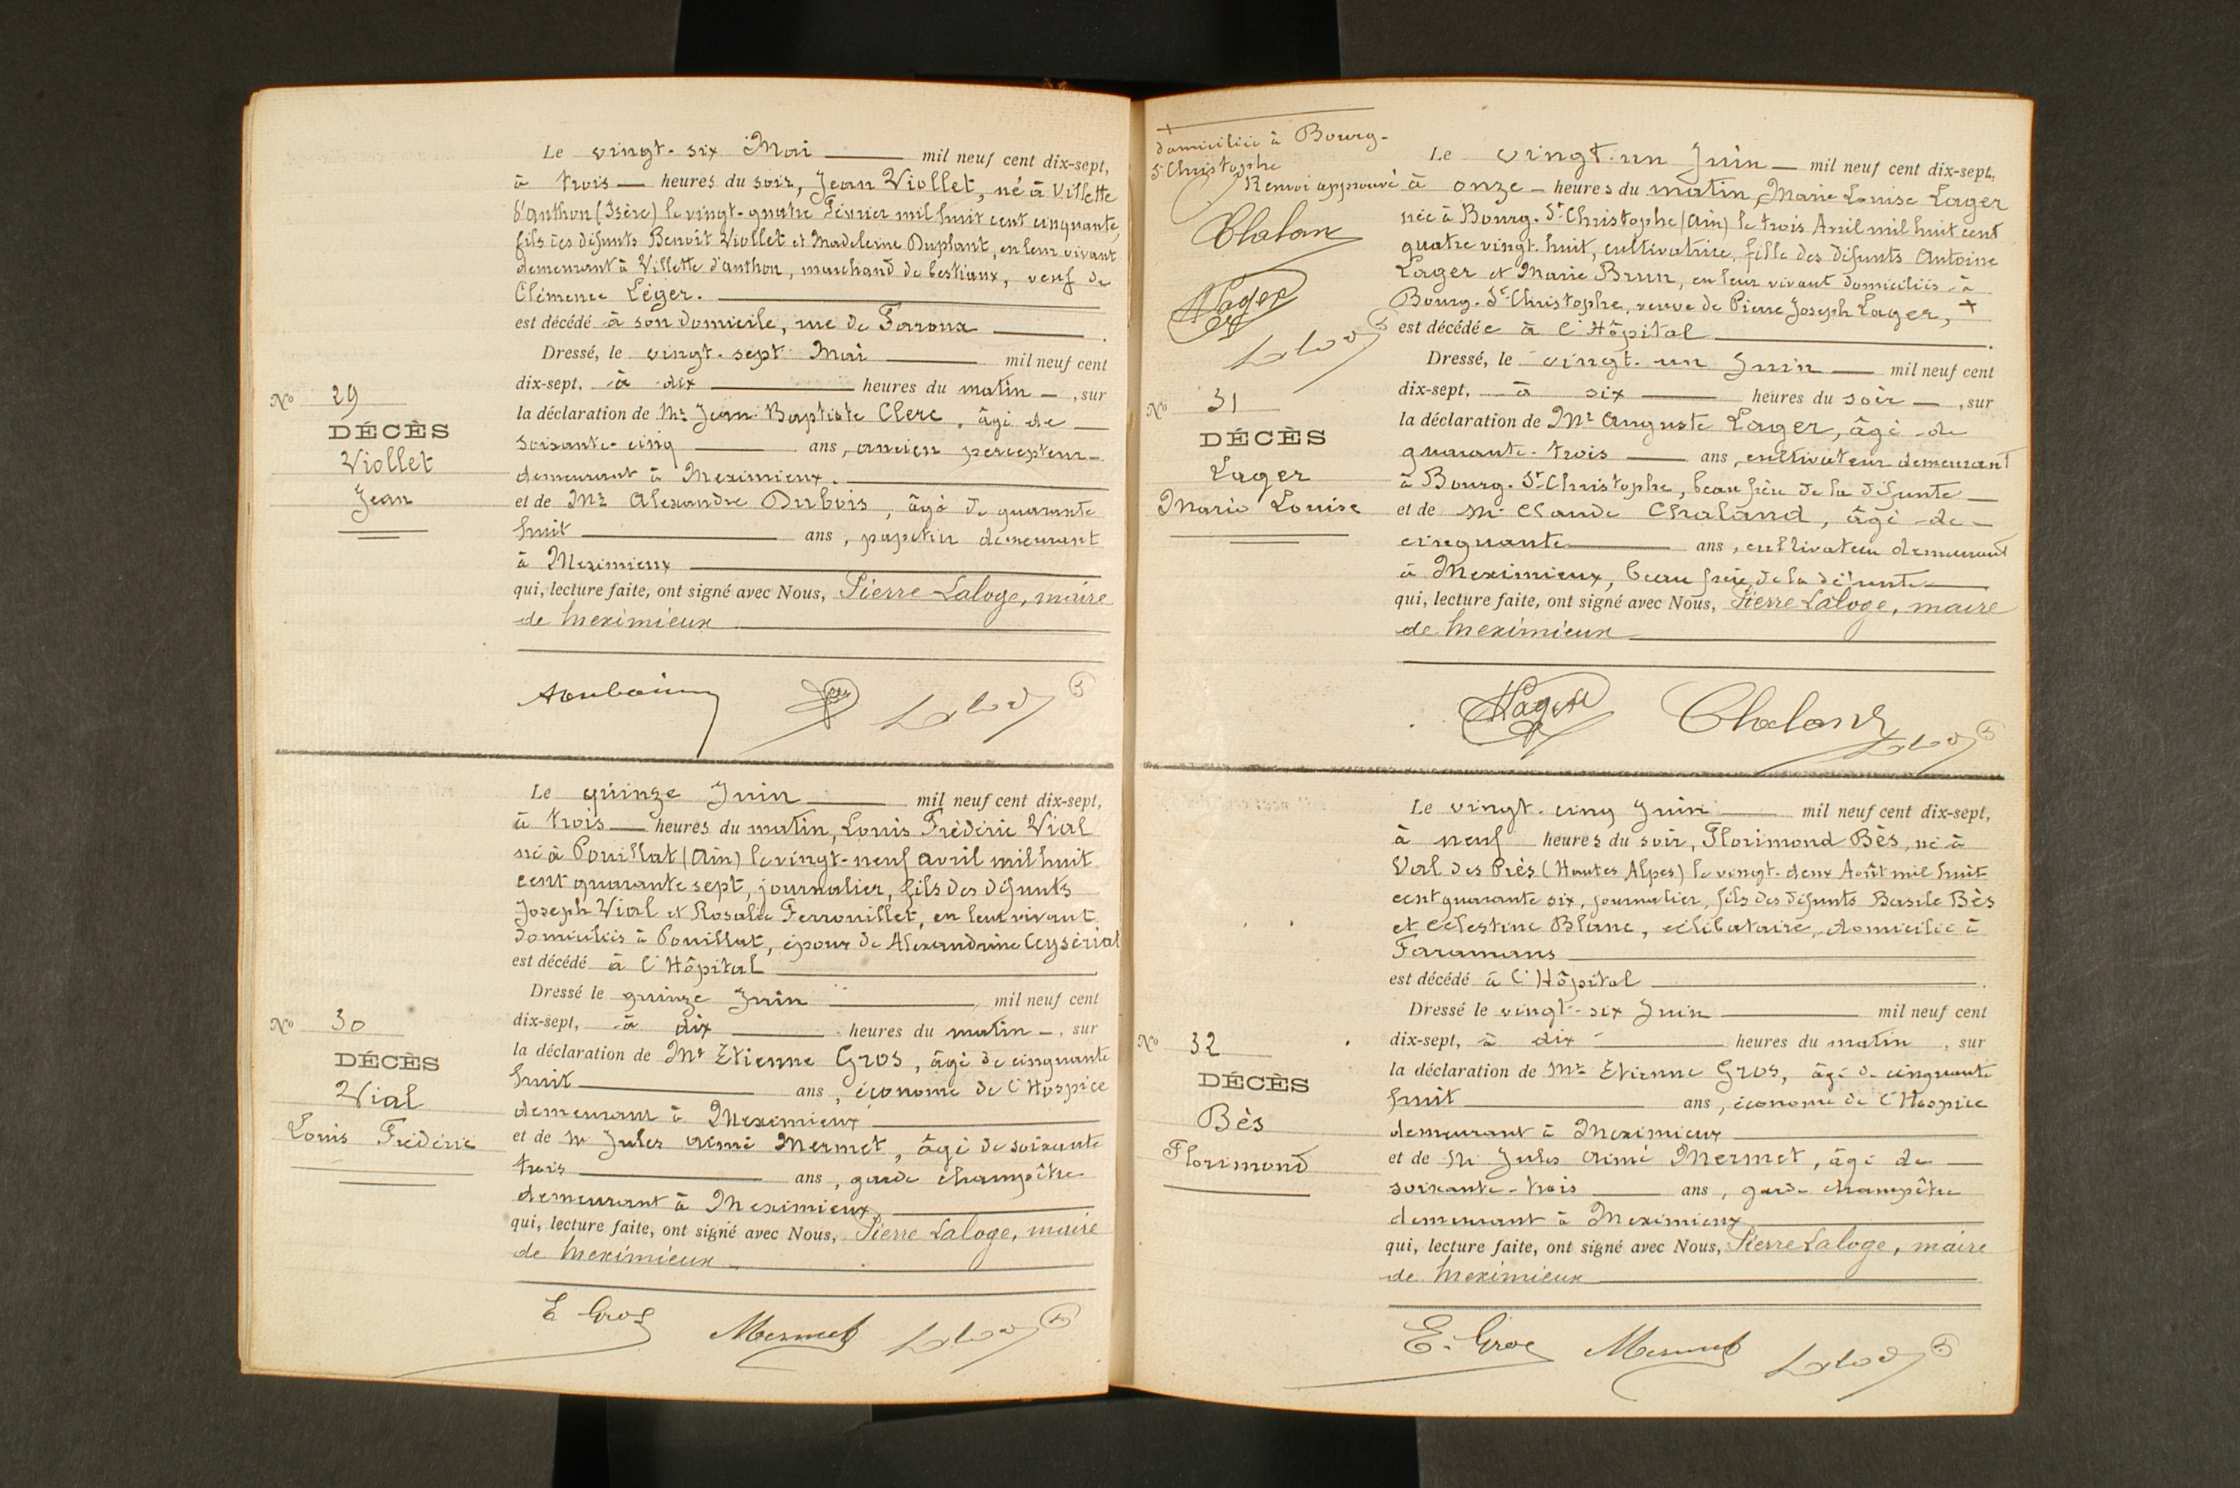 Le vingt-six Mai mil neuf cent dix-sept,
à trois heures du soir, Jean Viollet, né à Villette
d'Anthon (Isère) le vingt-quatre Février mil huit cent cinquante,
fils des défunts Benoît Viollet et Madeleine Duplant, en leur vivant
demeurant à Villette d'Anthon, marchand de bestiaux, veuf de
Clémence Léger.
est décédé à son domicile, rue de
Dressé, le vingt-sept Mai mil neuf cent
dix-sept, à dix heures du matin, sur
la déclaration de Mr Jean-Baptiste Clerc, âgé de
soixante-cinq ans, ancien percepteur
demeurant à Meximieux.
et de Mr Alexandre Dubois, âgé de quarante
huit ans, papetier demeurant
à Meximieux
qui, lecture faite, ont signé avec Nous, Pierre Laloge, maire
de Meximieux
No 29
DÉCÈS
Viollet
Jean
Le quinze Juin mil neuf cent dix-sept,
à trois heures du matin, Louis Frédéric Vial
né à Pouillat (Ain) le vingt-neuf avril mil huit
cent quarante sept, journalier, fils des défunts
Joseph Vial et Rosalie Ferrouillet, en leur vivant
domiciliés à Pouillat, époux de Alexandrine Ceysériat
est décédé à l'Hôpital
Dressé le quinze Juin mil neuf cent
dix-sept, à dix heures du matin, sur
la déclaration de Mr Etienne Gros, âgé de cinquante
huit ans, économe de l'Hospice
demeurant à Meximieux
et de Mr Jules Aimé Mermet, âgé de soixante
trois ans, garde champêtre
demeurant à Meximieux,
qui, lecture faite, ont signé avec Nous, Pierre Laloge, maire
de Meximieux
E Gros Mermet
No 30
DÉCÈS
Vial
Louis Frédéric
+
domiciliée à Bourg-
St Christophe
Renvoi approuvé
Chaland
Lager
Le vingt-un Juin mil neuf cent dix-sept,
à onze heures du matin, Marie Louise Lager
née à Bourg-St Christophe (Ain) le trois Avril mil huit cent
quatre vingt-huit, cultivatrice, fille des défunts Antoine
Lager et Marie Brun, en leur vivant domiciliés à
Bourg-St Christophe, veuve de Pierre Joseph Lager, +
est décédée à l'Hôpital
Dressé, le vingt-un Juin mil neuf cent
dix-sept, à six heures du soir, sur
la déclaration de Mr Auguste Lager, âgé de
quarante-trois ans, cultivateur demeurant
à Bourg-St Christophe, beau frère de la défunte
et de Mr Claude Chaland, âgé de
cinquante ans, cultivateur demeurant
à Meximieux, beau frère de la défunte
qui, lecture faite, ont signé avec Nous, Pierre Laloge, maire
de Meximieux
Lager Chaland
No 31
DÉCÈS
Lager
Marie Louise
Le vingt-cinq Juin mil neuf cent dix-sept,
à neuf heures du soir, Florimond Bès, né à
Val des Près (Hautes Alpes) le vingt-deux Août mil huit
cent quarante six, journalier, fils des défunts Basile Bès
et Célestine Blanc, célibataire, domicilié à
Faramans
est décédé à l'Hôpital
Dressé le vingt-six Juin mil neuf cent
dix-sept, à dix heures du matin, sur
la déclaration de Mr Etienne Gros, âgé de cinquante
huit ans, économe de l'Hospice
demeurant à Meximieux
et de Mr Jules Aimé Mermet, âgé de
soixante-trois ans, garde champêtre
demeurant à Meximieux
qui, lecture faite, ont signé avec Nous, Pierre Laloge, maire
de Meximieux
E. Gros Mermet
No 32
DÉCÈS
Bès
Florimond